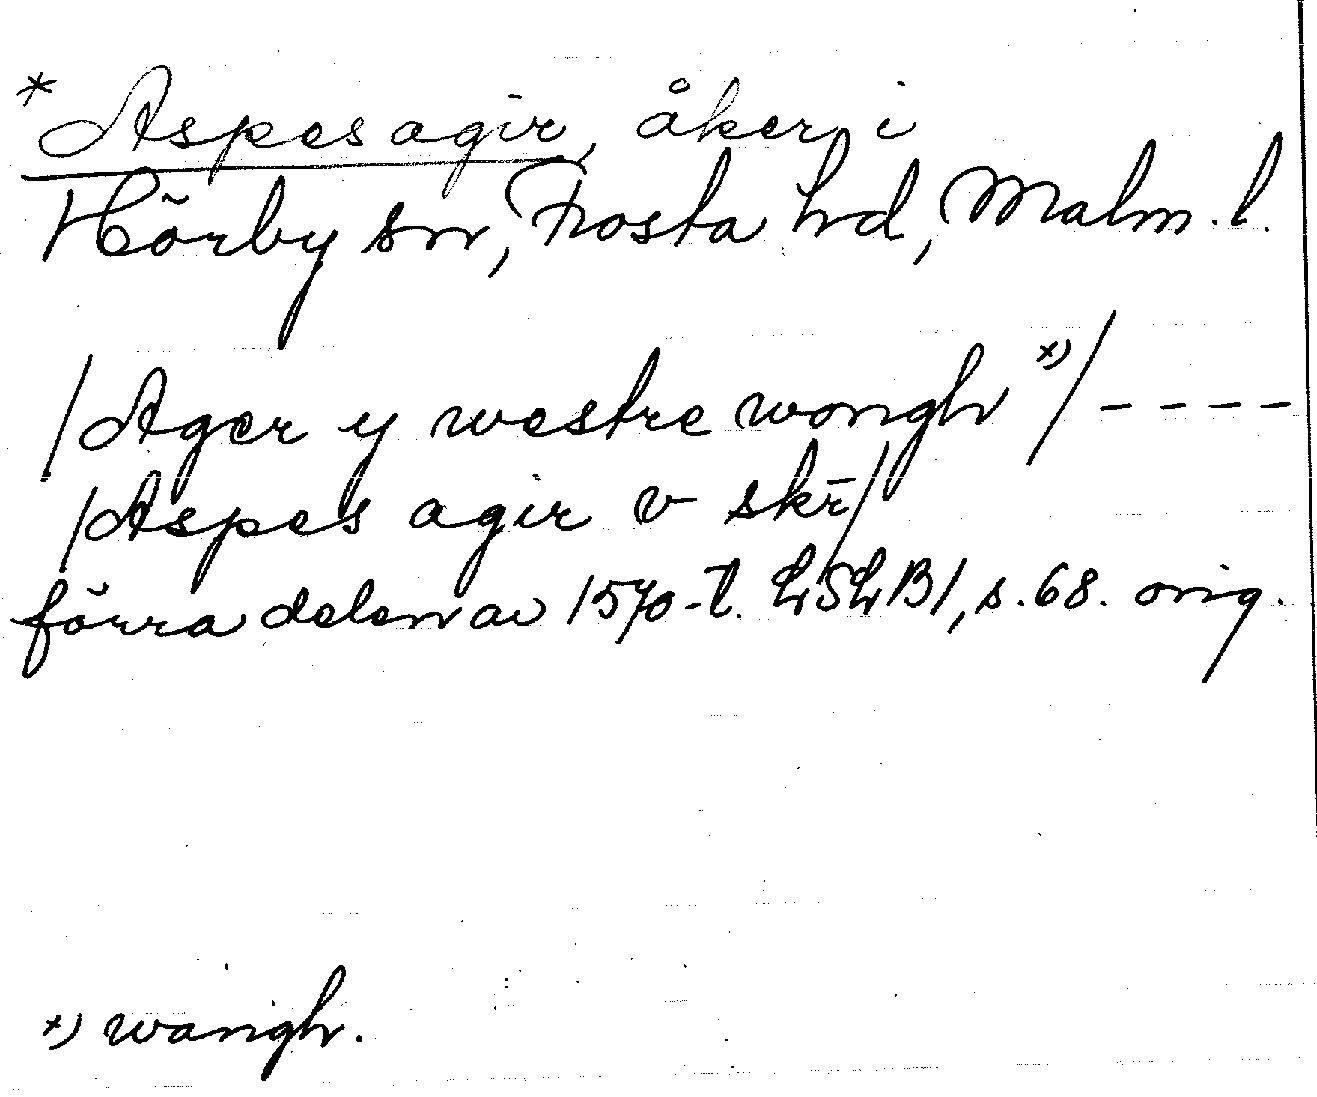 * Aspes agir, åker i
Hörby sn, Frosta hd, Malm. l.
/Ager y westre wongh x)/ - - - -
/Aspes agir v skr̄/
förra delen av 1570-t. LSLB1, s. 68. orig.
x) wangh.